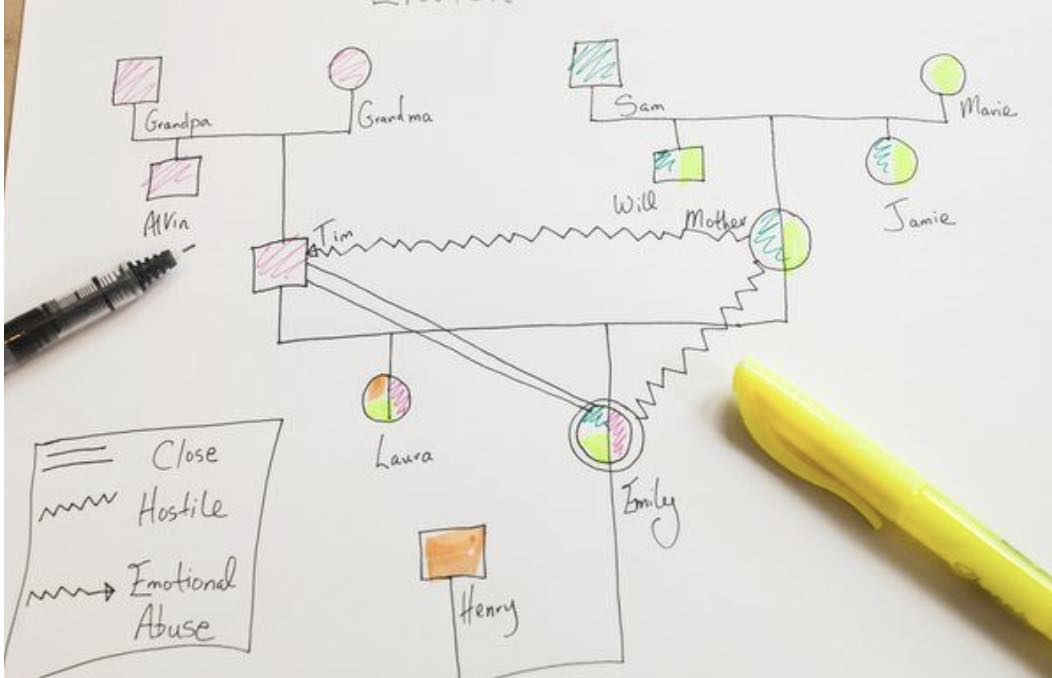 Grandpa
Grandma
Sam
Marie
Alvin
Will
Jamie
Tim
Mother
Laura
Emily
Henry
Close
Hostile
Emotional
Abuse